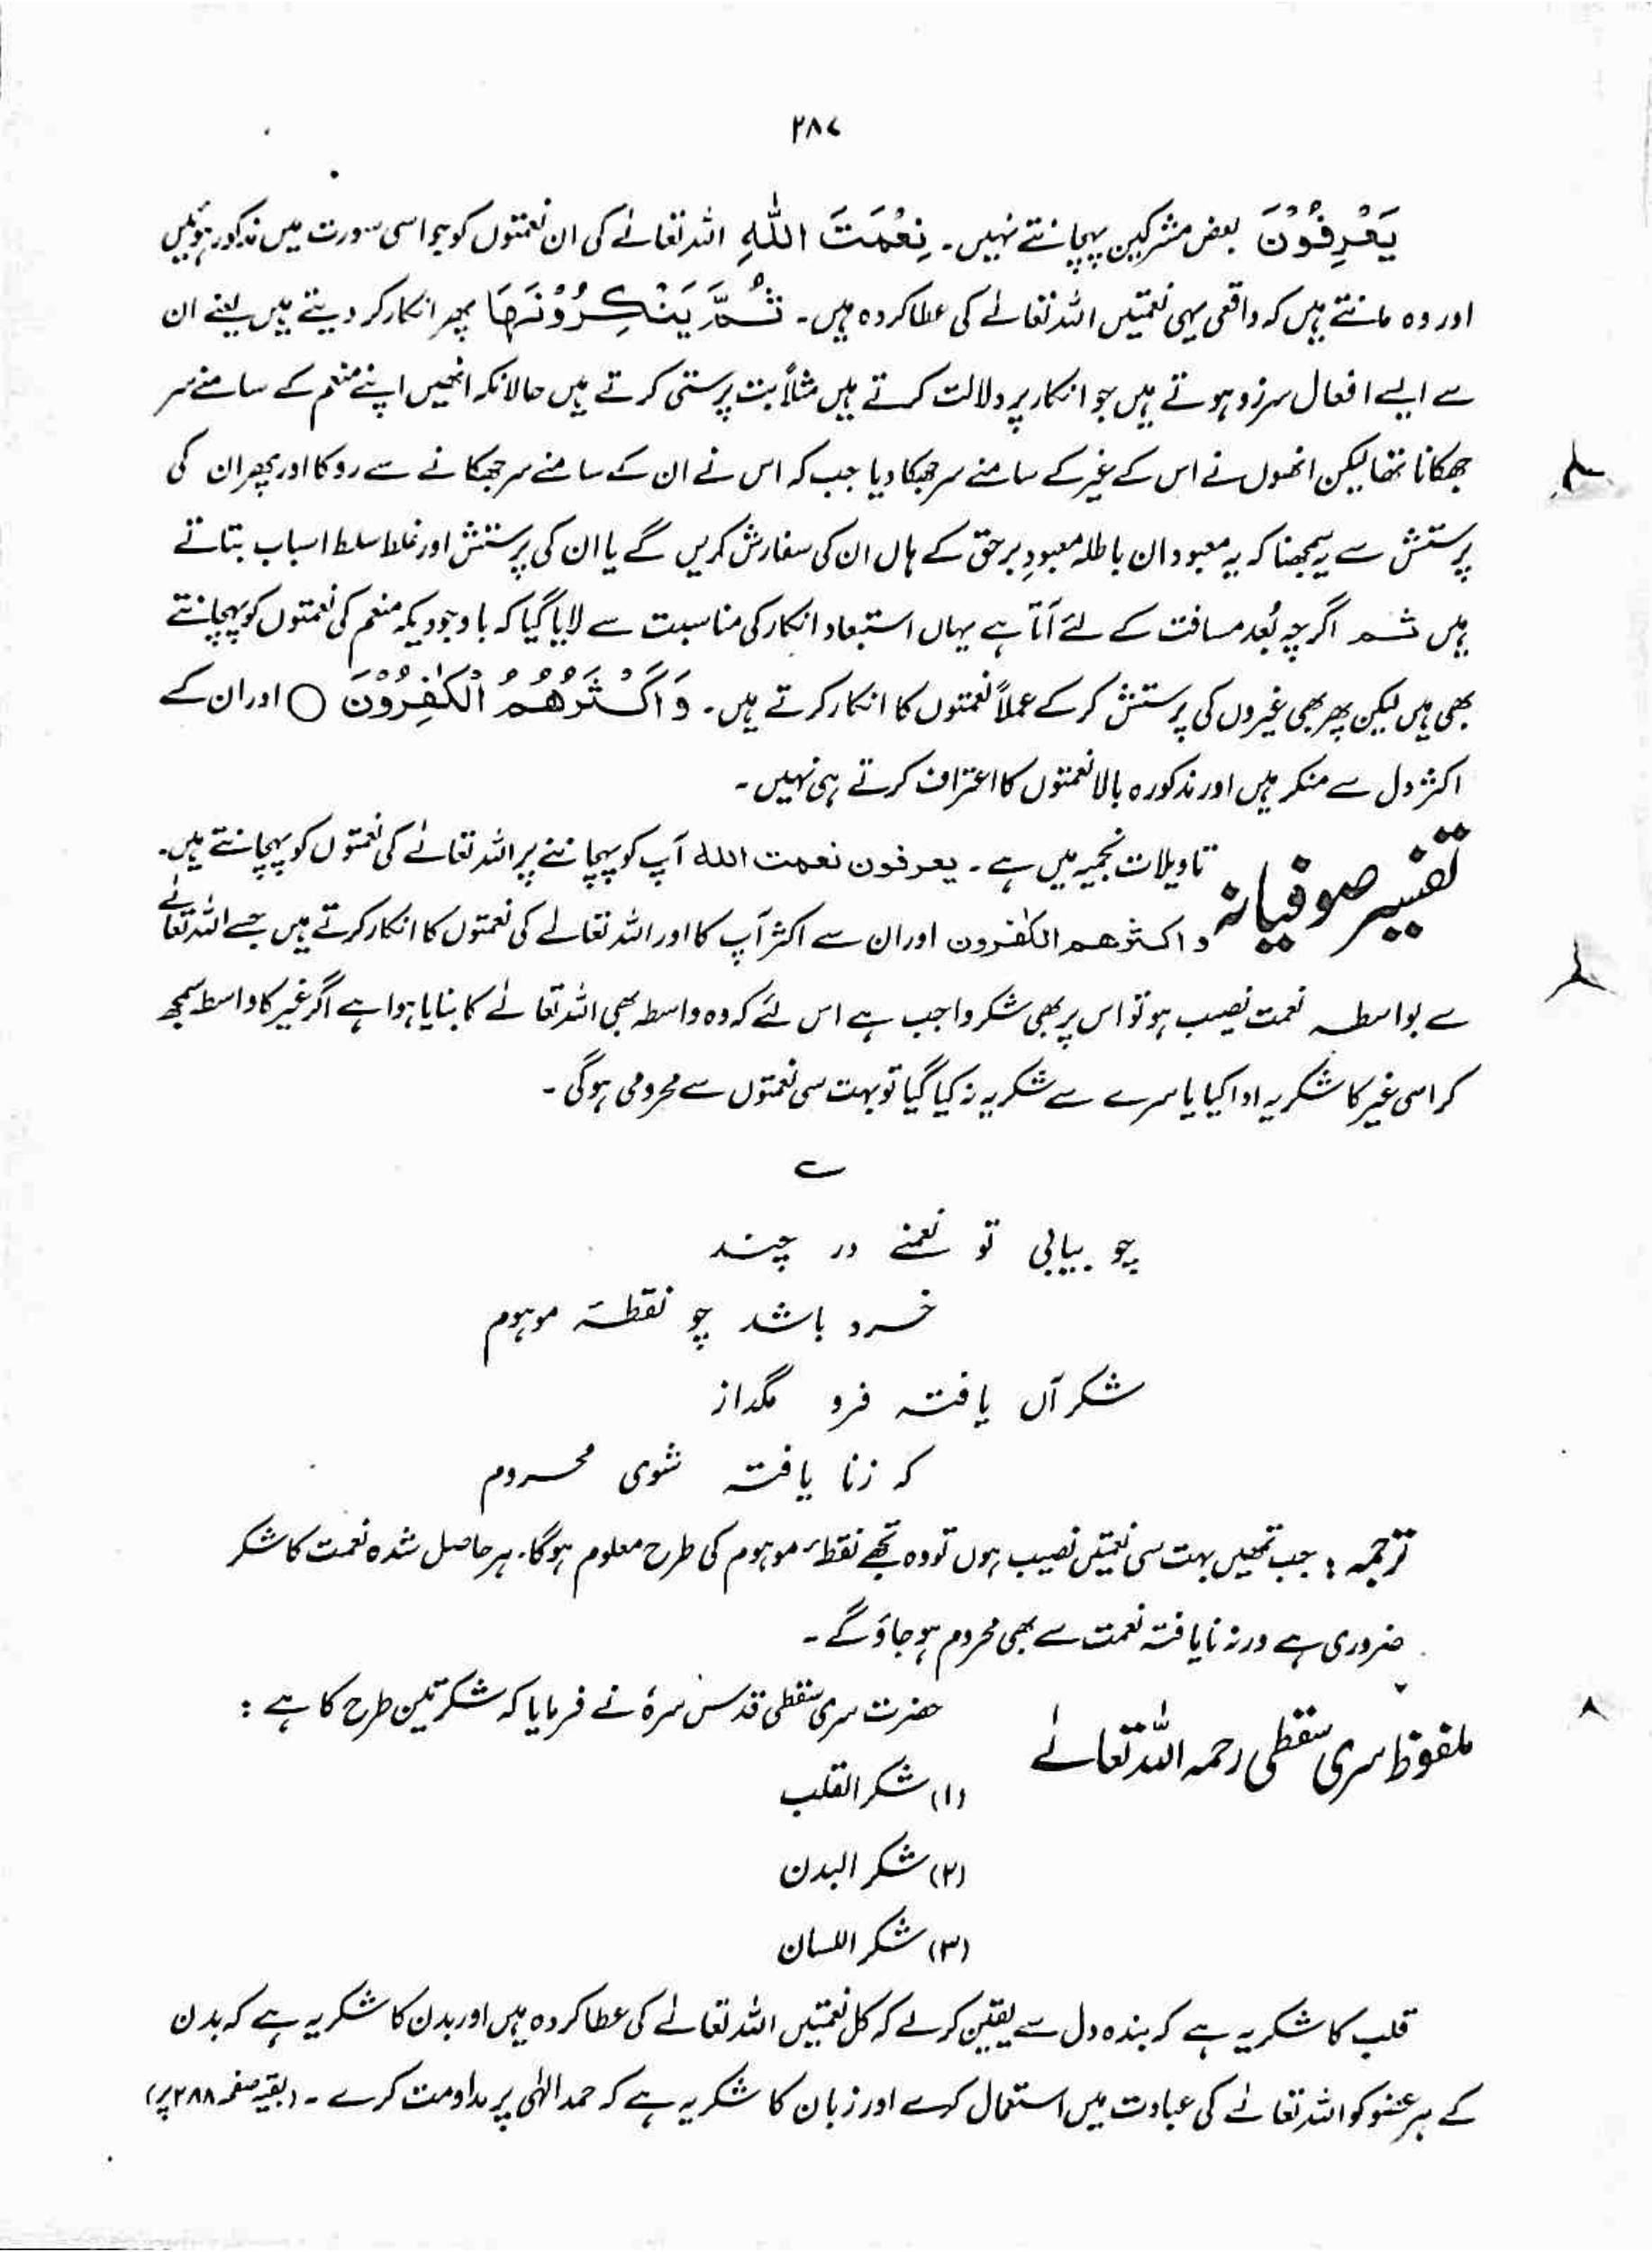 ۲۸۷
يَعْرِفُوْنَ بعض مشرکین پہچانتے نہیں۔ نِعْمَتَ اللّٰهِ اللہ تعالےٰ کی ان نعمتوں کو جو اسی سورت میں مذکور ہوئیں
اور وہ مانتے ہیں کہ واقعی یہی نعمتیں اللہ تعالےٰ کی عطا کردہ ہیں۔ ثُمَّ يُنْكِرُوْنَهَا پھر انکار کر دیتے ہیں یعنے ان
سے ایسے افعال سرزد ہوتے ہیں جو انکار پر دلالت کرتے ہیں مثلاً بت پرستی کرتے ہیں حالانکہ انھیں اپنے منعم کے سامنے سر
جھکانا تھا لیکن انھوں نے اس کے غیر کے سامنے سر جھکا دیا جب کہ اس نے ان کے سامنے سر جھکانے سے روکا اور پھر ان کی
پرستش سے یہ سمجھنا کہ یہ معبودان باطلہ معبودِ برحق کے ہاں ان کی سفارش کریں گے یا ان کی پرستش اور غلط سلط اسباب بتاتے
ہیں ثم اگرچہ بُعد مسافت کے لئے آتا ہے یہاں استبعاد انکار کی مناسبت سے لایا گیا کہ باوجودیکہ منعم کی نعمتوں کو پہچانتے
بھی ہیں لیکن پھر بھی غیروں کی پرستش کر کے عملاً نعمتوں کا انکار کرتے ہیں۔ وَاَكْثَرُهُمُ الْكٰفِرُوْنَ ○ اور ان کے
اکثر دل سے منکر ہیں اور مذکورہ بالا نعمتوں کا اعتراف کرتے ہی نہیں۔
تفسیر صوفیانہ تاویلات نجمیہ میں ہے۔ یعرفون نعمت اللہ آپ کو پہچاننے پر اللہ تعالےٰ کی نعمتوں کو پہچانتے ہیں۔
و اکثرھم الکٰفرون اور ان سے اکثر آپ کا اور اللہ تعالےٰ کی نعمتوں کا انکار کرتے ہیں جسے اللہ تعالےٰ
سے بواسطہ نعمت نصیب ہو تو اس پر بھی شکر واجب ہے اس لئے کہ وہ واسطہ بھی اللہ تعالےٰ کا بنایا ہوا ہے اگر غیر کا واسطہ سمجھ
کر اسی غیر کا شکریہ ادا کیا یا سرے سے شکریہ نہ کیا گیا تو بہت سی نعمتوں سے محرومی ہوگی۔
؎
چو بیابی تو نعمتے در چند
خرد باشد چو نقطۂ موہوم
شکر آں یافتہ فرو مگداز
کہ زنا یافتہ شوی محروم
ترجمہ : جب تمھیں بہت سی نعمتیں نصیب ہوں تو وہ تجھے نقطۂ موہوم کی طرح معلوم ہوگا۔ ہر حاصل شدہ نعمت کا شکر
ضروری ہے ورنہ نایافتہ نعمت سے بھی محروم ہو جاؤ گے۔
ملفوظ سری سقطی رحمہ اللہ تعالےٰ حضرت سری سقطی قدس سرہٗ نے فرمایا کہ شکر تین طرح کا ہے :
(۱) شکر القلب
(۲) شکر البدن
(۳) شکر اللسان
قلب کا شکریہ ہے کہ بندہ دل سے یقین کرلے کہ کل نعمتیں اللہ تعالےٰ کی عطا کردہ ہیں اور بدن کا شکریہ ہے کہ بدن
کے ہر عضو کو اللہ تعالےٰ کی عبادت میں استعمال کرے اور زبان کا شکریہ ہے کہ حمد الٰہی پر مداومت کرے۔ (بقیہ صفحہ ۲۸۸ پر)